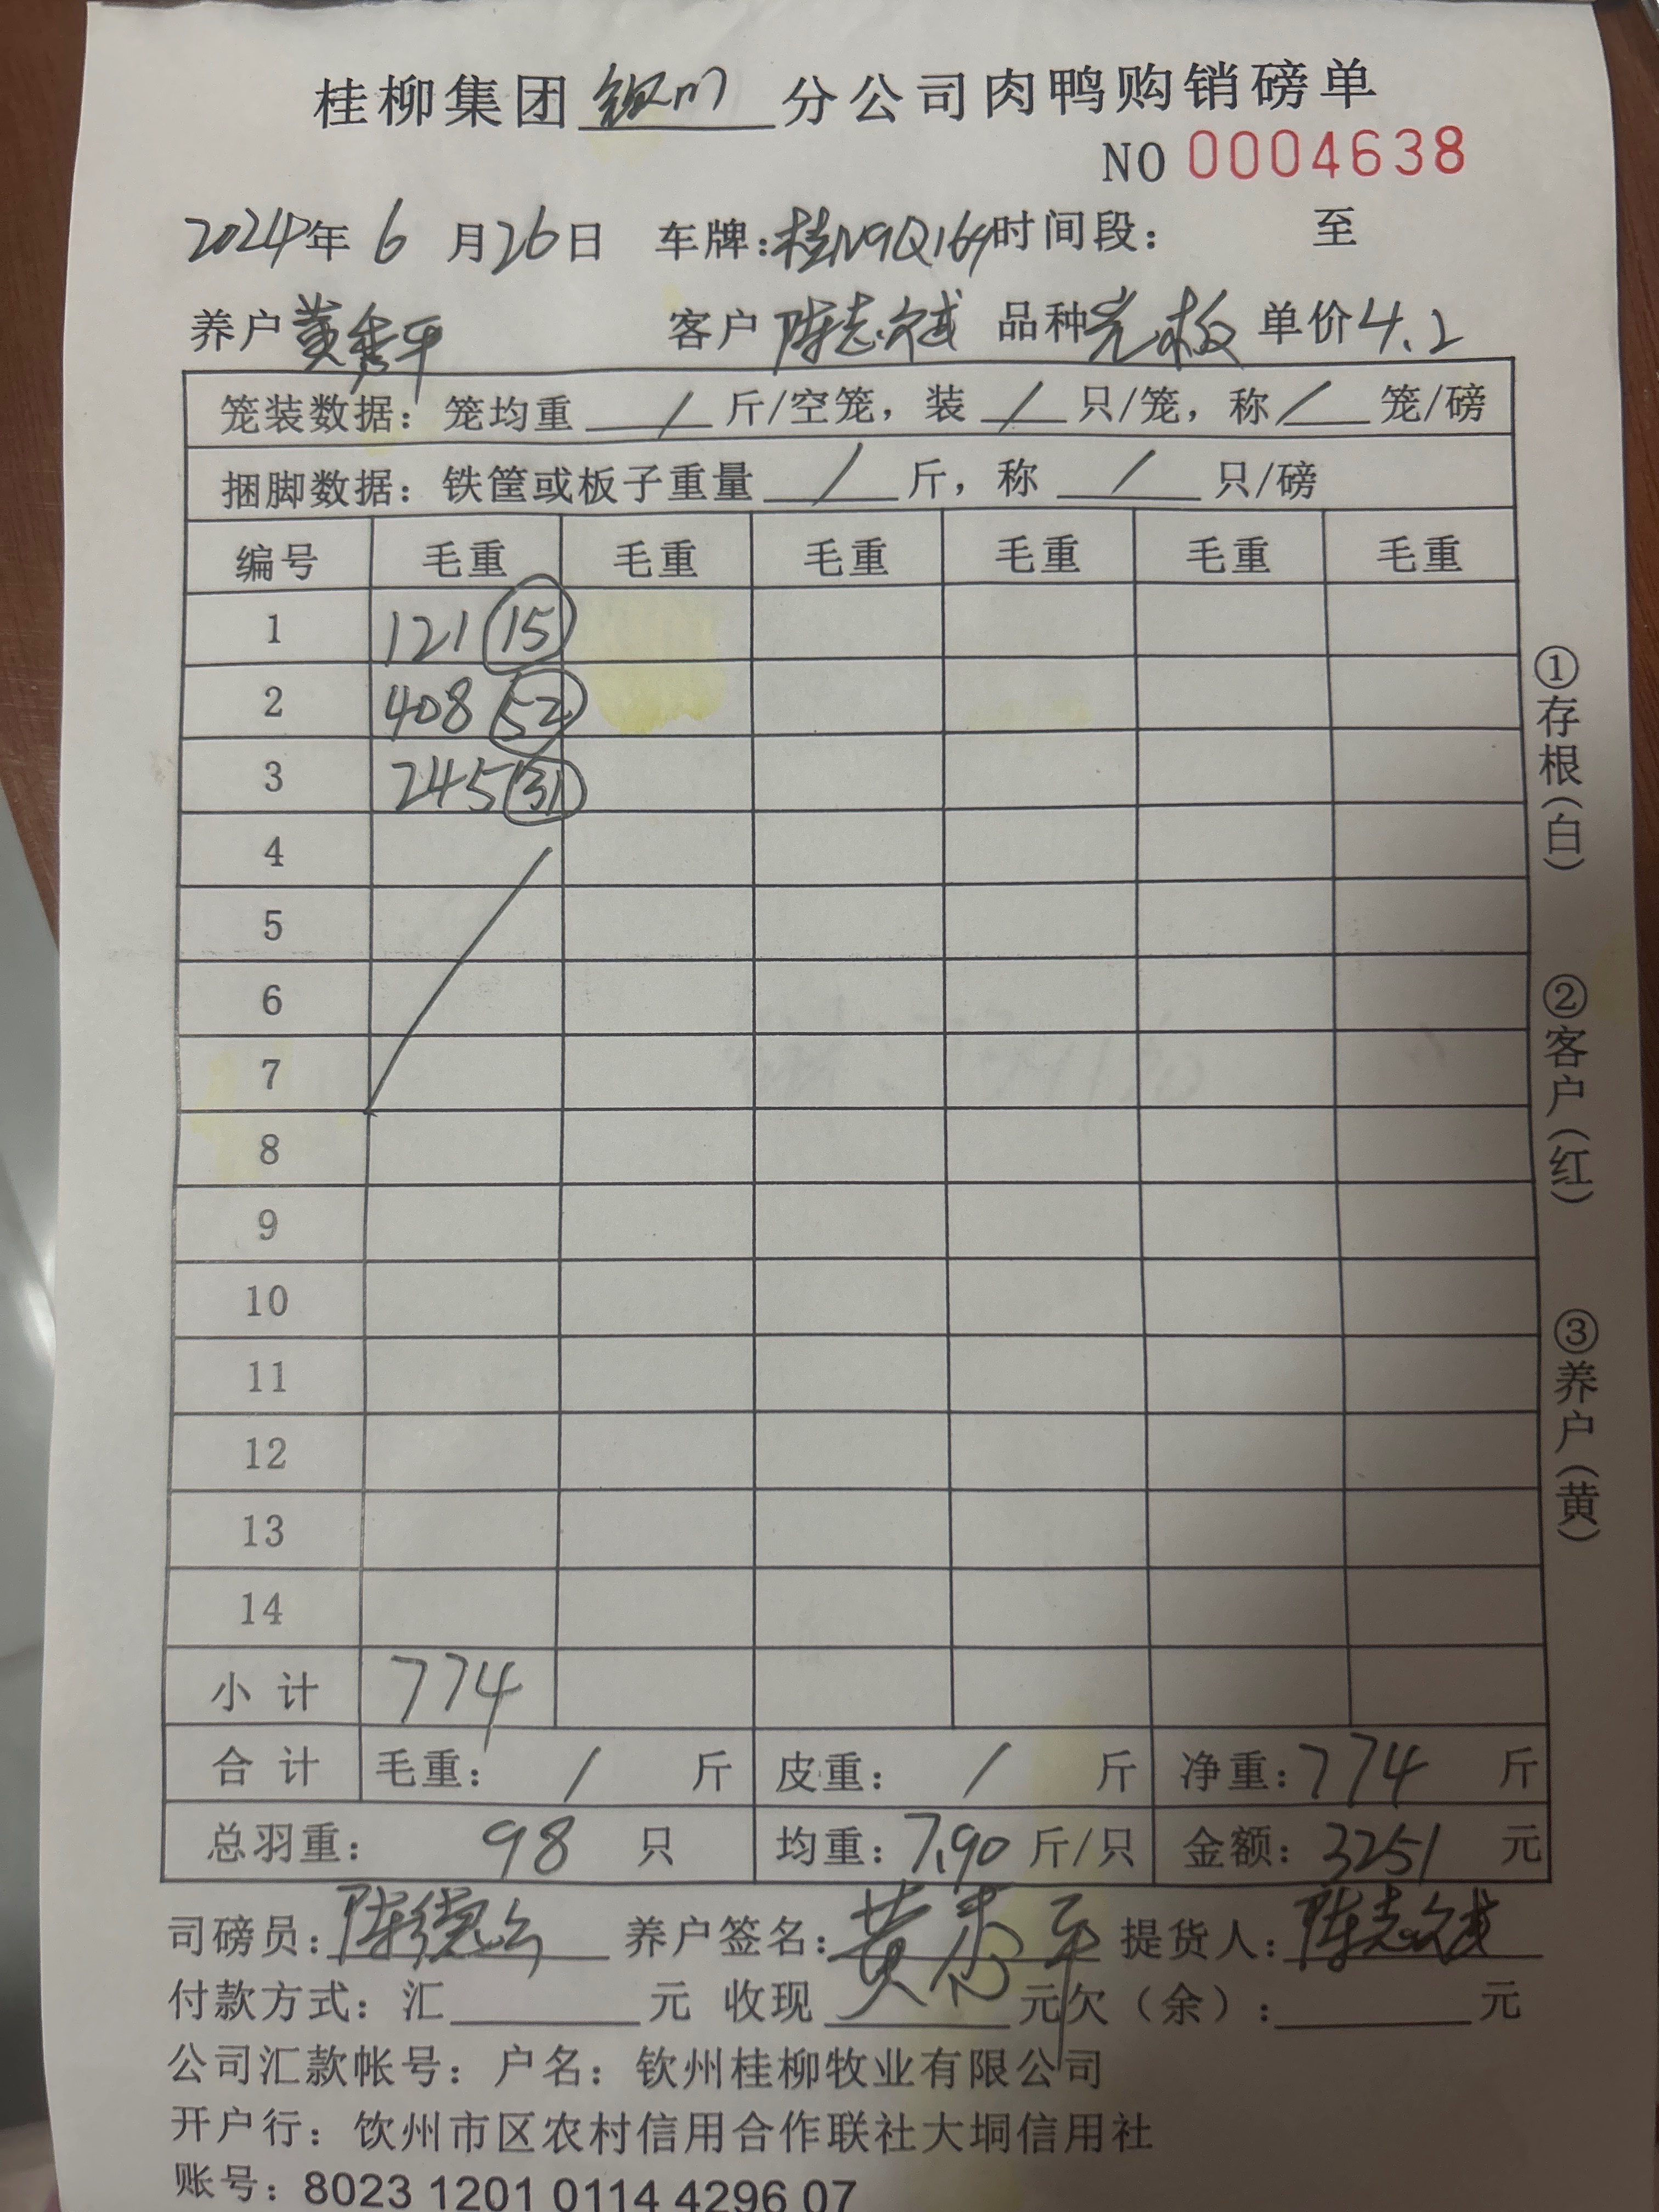 桂柳集团钦州分公司肉鸭购销磅单
NO 0004638
2024年6月26日 车牌:桂N9Q169时间段: 至
养户黄秀平 客户陈志斌 品种光板 单价4.2
笼装数据:笼均重 / 斤/空笼,装 / 只/笼,称 / 笼/磅
捆脚数据:铁筐或板子重量 / 斤,称 / 只/磅
编号 毛重 毛重 毛重 毛重 毛重 毛重
1 121 15
2 408 52
3 245 31
4
5
6
7
8
9
10
11
12
13
14
小计 774
合计 毛重: / 斤 皮重: / 斤 净重:774 斤
总羽重: 98 只 均重:7.90 斤/只 金额:3251 元
司磅员:陈德 养户签名:黄秀平 提货人:陈志斌
付款方式:汇 元 收现 元欠(余): 元
公司汇款帐号:户名:钦州桂柳牧业有限公司
开户行:饮州市区农村信用合作联社大垌信用社
账号:8023 1201 0114 4296 07
①存根(白)
②客户(红)
③养户(黄)